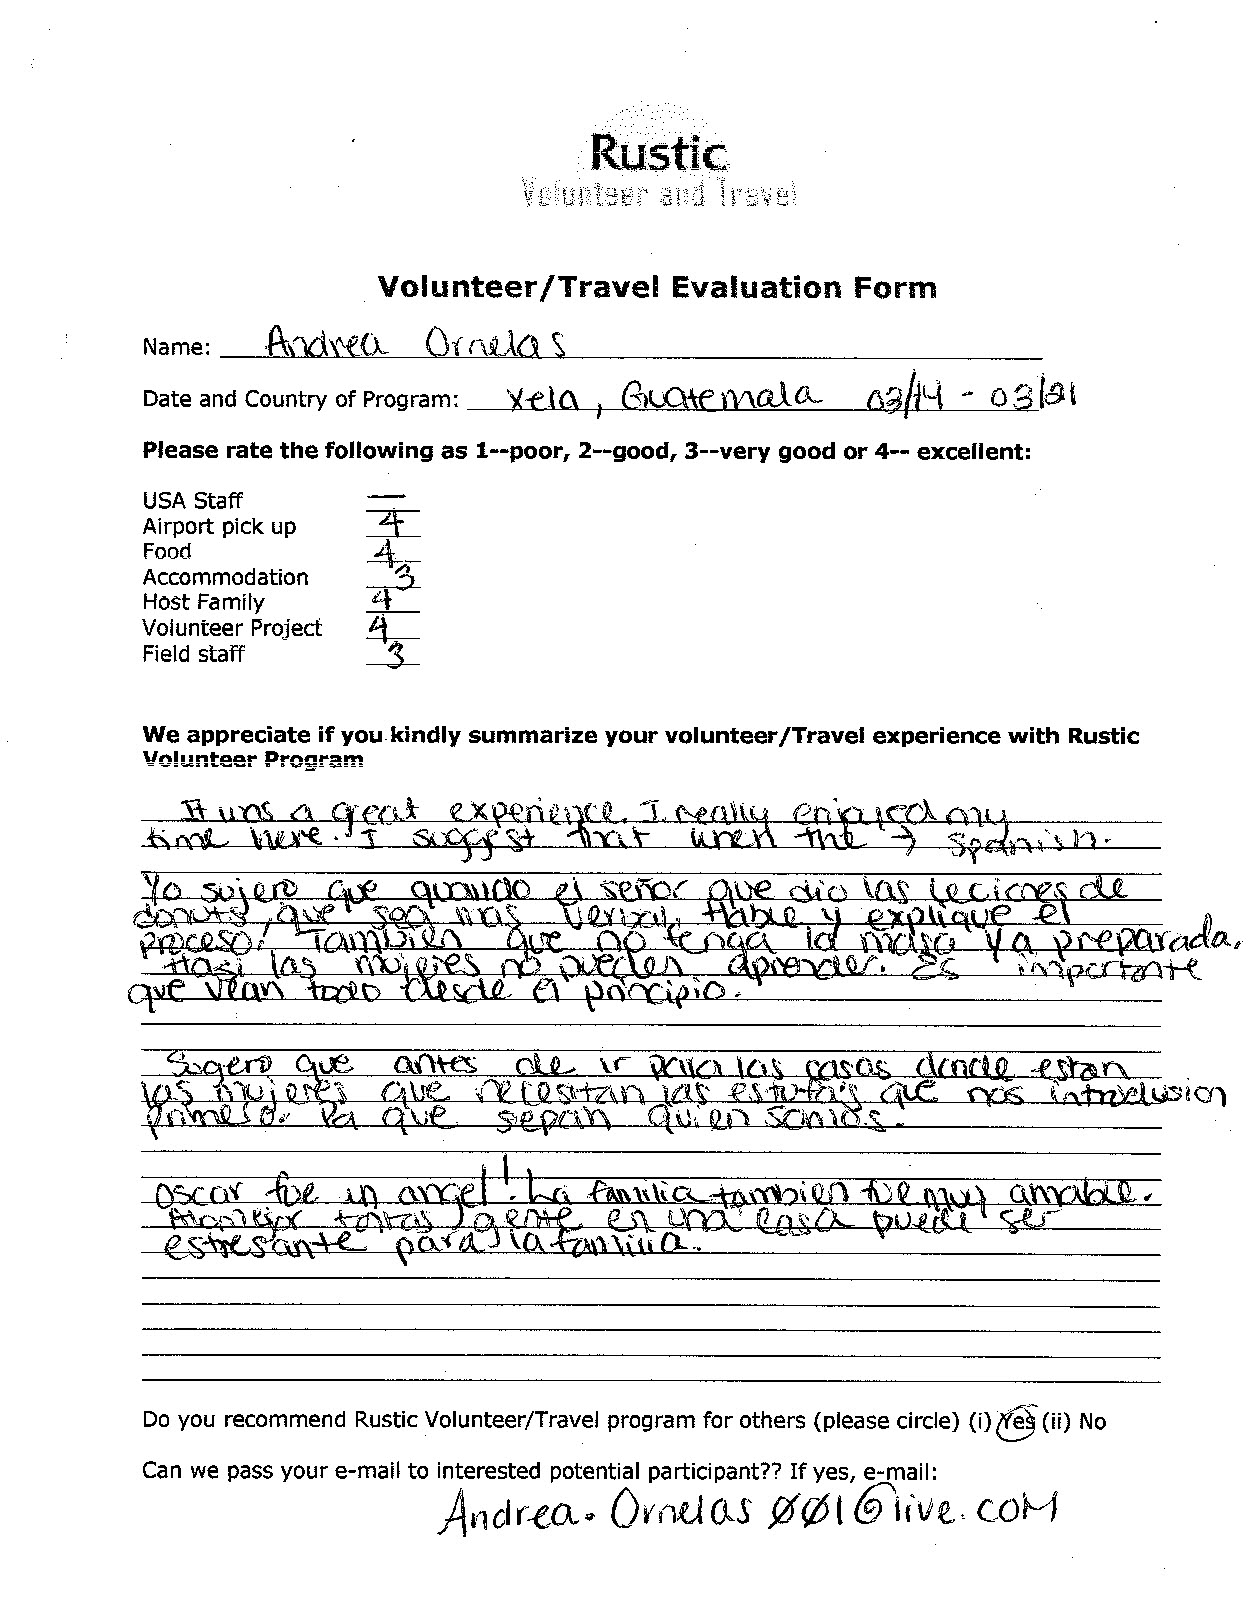 Rustic
Volunteer and Travel
Volunteer/Travel Evaluation Form
Name: Andrea Ornelas
Date and Country of Program: Xela, Guatemala 03/14 - 03/21
Please rate the following as 1--poor, 2--good, 3--very good or 4-- excellent:
USA Staff —
Airport pick up 4
Food 4
Accommodation 3
Host Family 4
Volunteer Project 4
Field staff 3
We appreciate if you kindly summarize your volunteer/Travel experience with Rustic
Volunteer Program
It was a great experience. I really enjoyed my
time here. I suggest that when the → Spanish.
Yo sujero que quando el señor que dio las leciones de
donuts, que sea mas verbal. Hable y explique el
proceso. Tambien que no tenga la masa ya preparada.
Hasi las mujeres no pueden aprender. Es importante
que vean todo desde el principio.
Sugero que antes de ir para las casas donde estan
las mujeres que necesitan las estufas que nos
primero. Pa que sepan quien somos.
Oscar fue un angel! La familia tambien fue muy amable.
tantas gente en una casa puede ser
estresante para la familia.
Do you recommend Rustic Volunteer/Travel program for others (please circle) (i) Yes (ii) No
Can we pass your e-mail to interested potential participant?? If yes, e-mail:
Andrea.Ornelas001@live.com